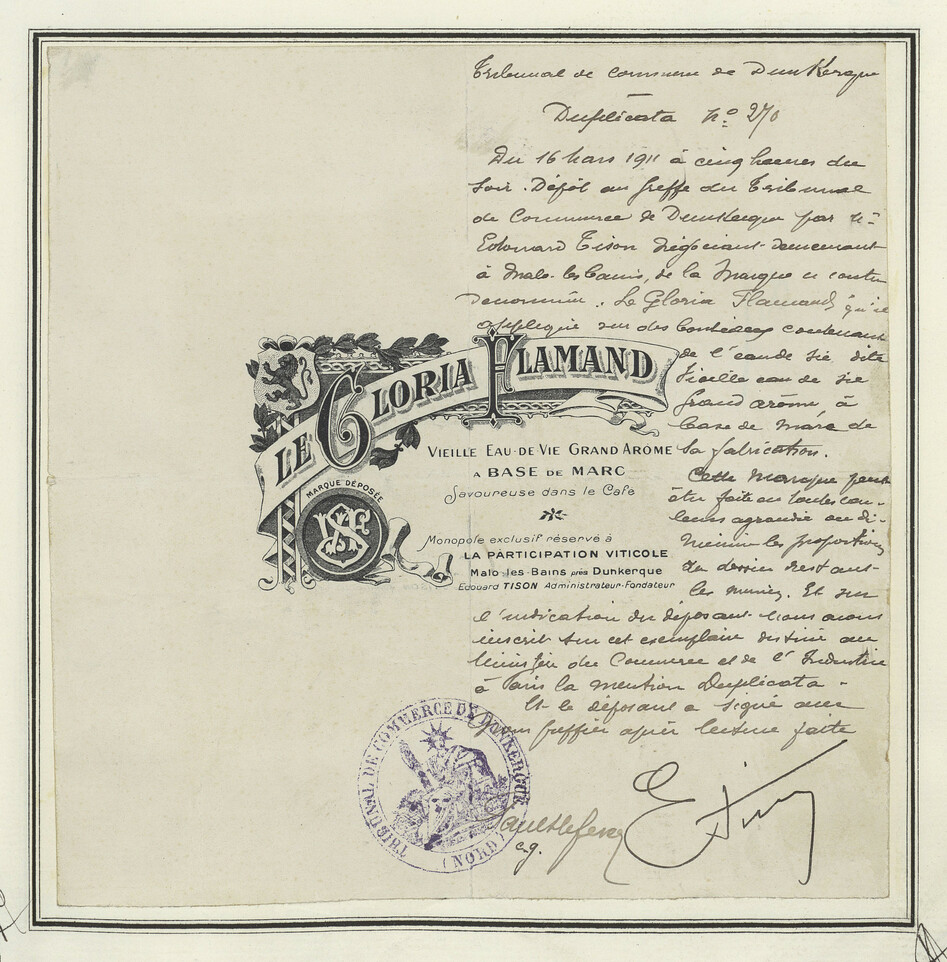 Tribunal de commerce de Dunkerque
Duplicata Nº 270
Du 16 Mars 1911 à cinq heures du
soir. Dépôt au greffe du Tribunal
de Commerce de Dunkerque par Mr
Edouard Tison négociant demeurant
à Malo-les-Bains, de la Marque ci contre
dénommée. Le Gloria Flamand qu'il
applique sur des bouteilles contenant
de l'eau de vie dite
Vieille eau de vie
grand arôme à
base de marc de
sa fabrication.
Cette Marque peut
être faite en toutes cou-
leurs agrandie ou di-
minuée les proportions
du dessin restant
les mêmes. Et sur
l'indication du déposant nous avons
inscrit sur cet exemplaire destiné au
Ministère du Commerce et de l'Industrie
à Paris la mention Duplicata.
Et le déposant a signé avec
nous greffier après lecture faite
LE GLORIA FLAMAND
VIEILLE EAU-DE-VIE GRAND ARÔME
A BASE DE MARC
Savoureuse dans le Café
MARQUE DÉPOSÉE
Monopole exclusif réservé à
LA PARTICIPATION VITICOLE
Malo-les-Bains près Dunkerque
Edouard TISON Administrateur-Fondateur
TRIBUNAL DE COMMERCE DE DUNKERQUE
(NORD)
E Tison
c.g.